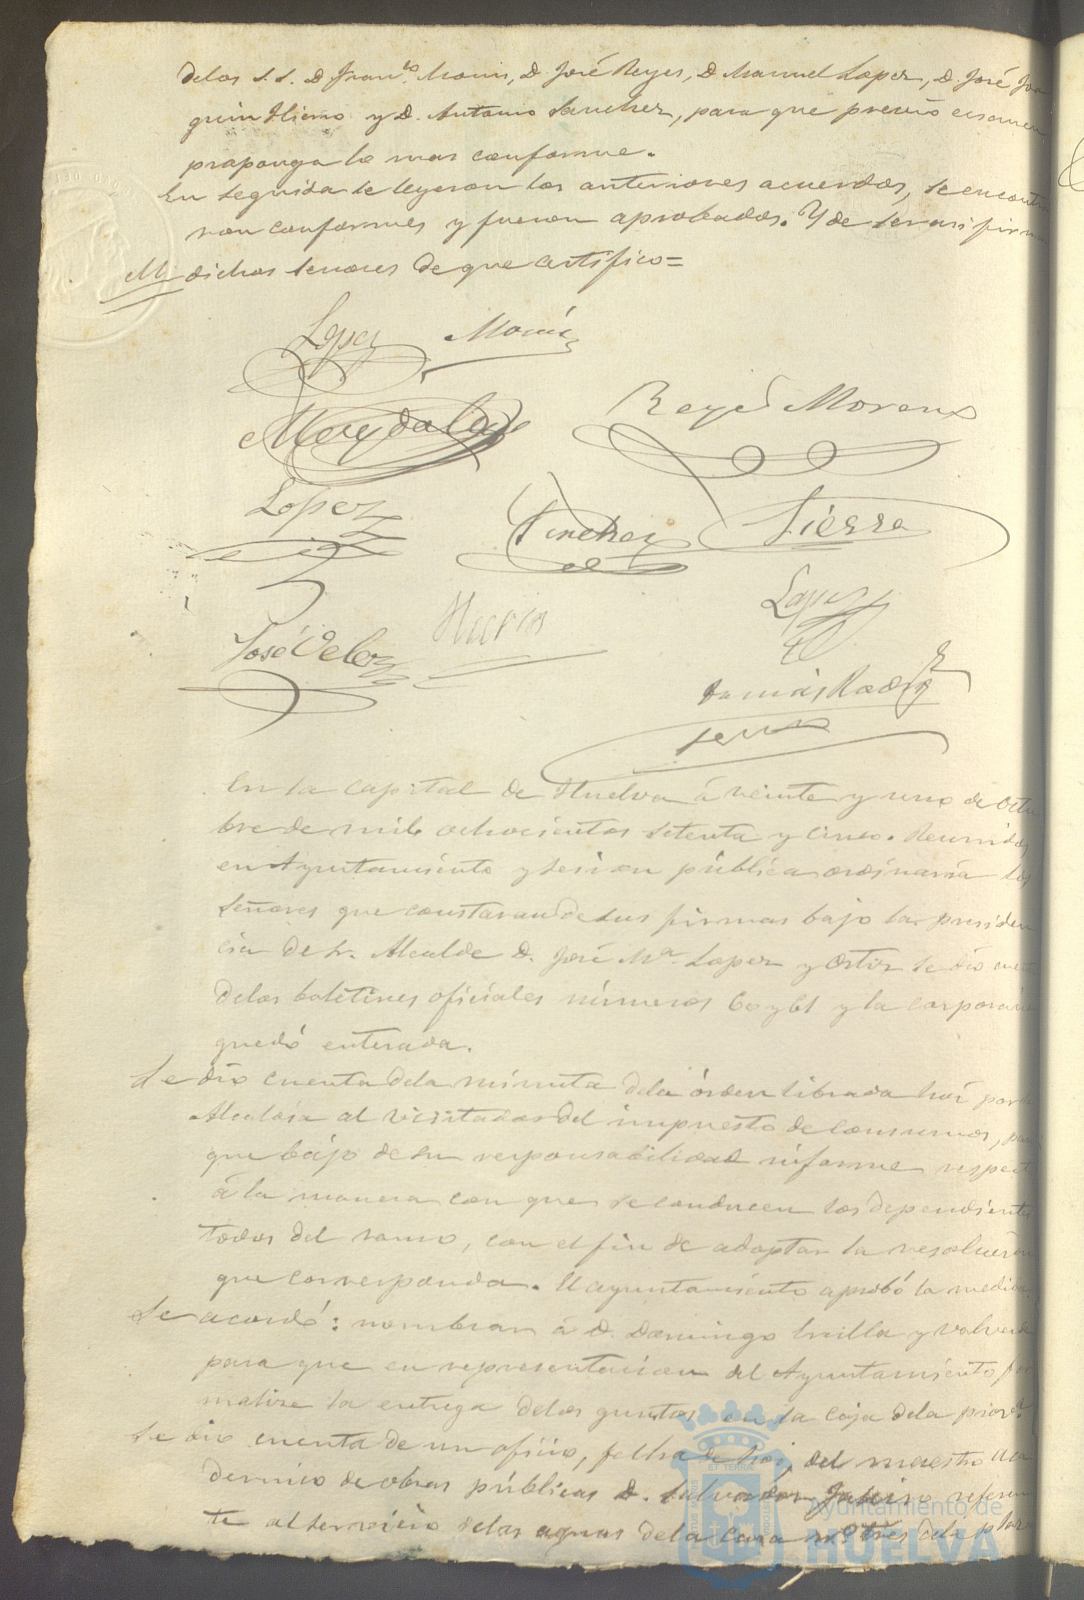 delos S.S. D. Franco. Morin, D. José Reyes, D. Manuel Lopez, D. José Joa
quin Hierro y D. Antonio Sanchez, para que previo ecsamen
proponga lo mas conforme.
En seguida se leyeron los anteriores acuerdos, se encontra
ron conformes y fueron aprobados. Y de ser asi firm
dichos señores de que certifico=
Lopez Morin
Reyes Moreno
Lopez
Sanchez Sierra
Lopez
José Velez Hierro
Tomás Rodrig
En la Capital de Huelva á veinte y uno de Octu
bre de mil ochocientos setenta y cinco. Reunidos
en Ayuntamiento y sesion pública ordinaria los
señores que constaran de sus firmas bajo la presiden
cia del Sr. Alcalde D. José Ma. Lopez y Ortiz se dió cuenta
delos boletines oficiales números 60 y 61 y la corporación
quedó enterada.
Se dió cuenta dela minuta dela órden librada hoi por la
Alcaldia al Visitador del impuesto de Consumos, para
que bájo de su responsabilidad informe respecto
á la manera con que se conducen los dependientes
todos del ramo, con el fin de adoptar la resolución
que corresponda. El ayuntamiento aprobó la medida
Se acordó: nombrar á D. Domingo y Valverde
para que en representacion del Ayuntamiento for
malize la entrega delos quintos en la Caja dela provª.
Se dió cuenta de un oficio, fecha de hoi, del maestro
de obras públicas D. Salvador referen
te al servicio delas aguas dela Casa nº. tres dela plaza
Ayuntamiento de
HUELVA